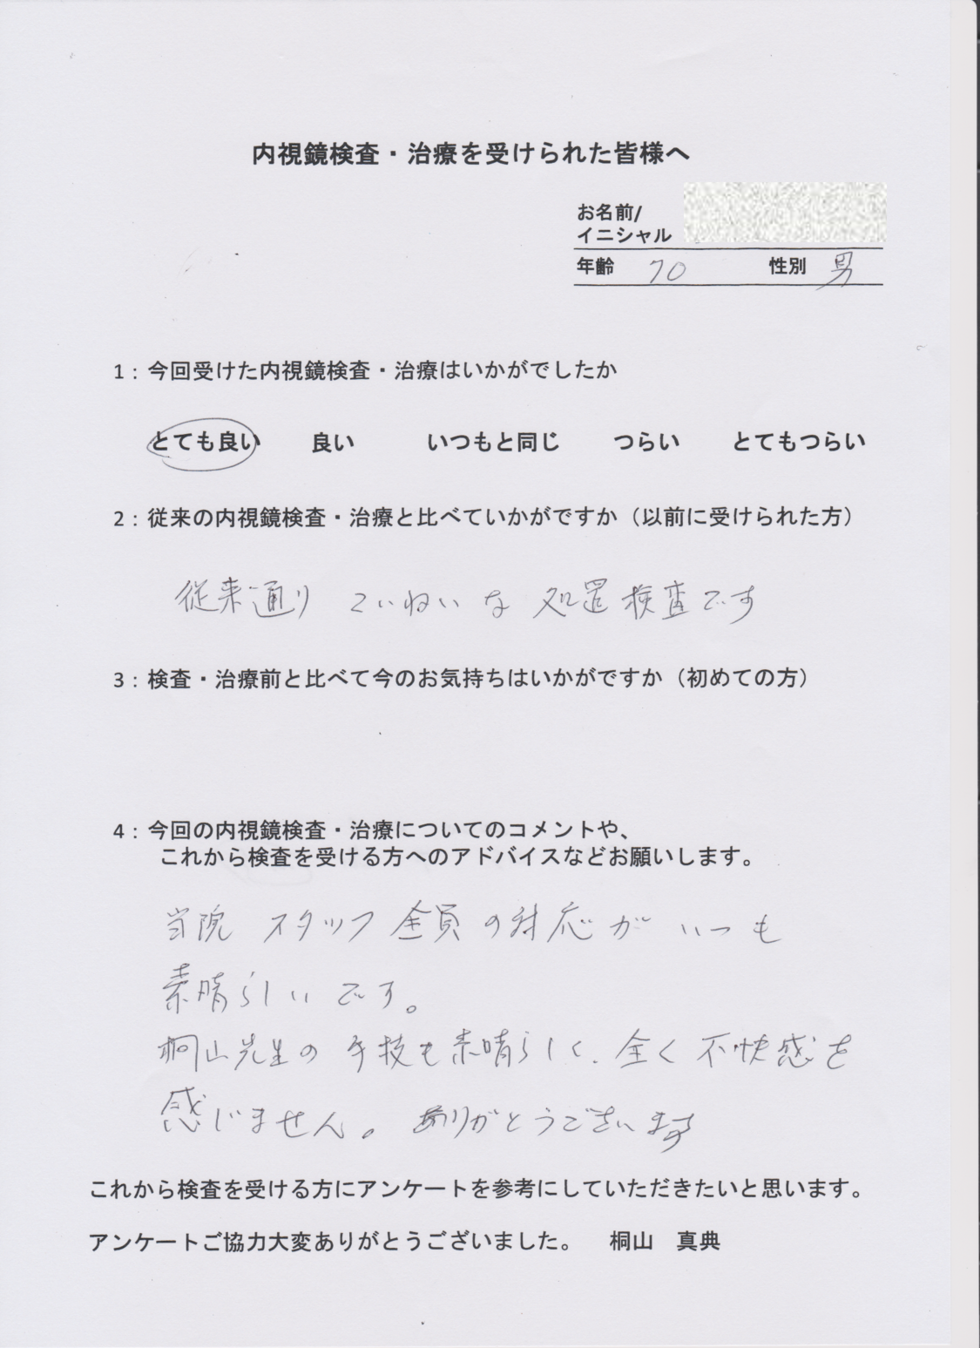 内視鏡検査・治療を受けられた皆様へ
お名前/
イニシャル
年齢 70 性別 男
1：今回受けた内視鏡検査・治療はいかがでしたか
とても良い 良い いつもと同じ つらい とてもつらい
2：従来の内視鏡検査・治療と比べていかがですか（以前に受けられた方）
従来通り ていねいな 処置検査です
3：検査・治療前と比べて今のお気持ちはいかがですか（初めての方）
4：今回の内視鏡検査・治療についてのコメントや、
これから検査を受ける方へのアドバイスなどお願いします。
当院 スタッフ 全員の対応が いつも
素晴らしいです。
桐山先生の 手技も素晴らしく、全く不快感を
感じません。ありがとうございます
これから検査を受ける方にアンケートを参考にしていただきたいと思います。
アンケートご協力大変ありがとうございました。 桐山 真典